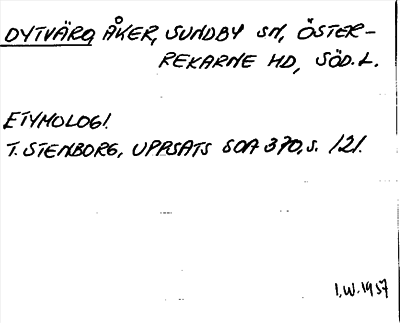 DYTVÄRG, ÅKER, SUNDBY SN, ÖSTER-
REKARNE HD, SÖD.L.
ETYMOLOGI.
T. STENBORG, UPPSATS SOA 370, S. 121.
I.W. 1957